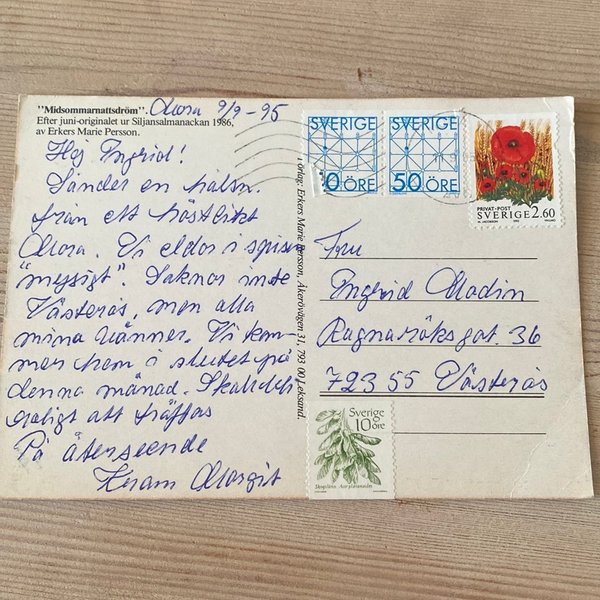 "Midsommarnattsdröm".
Efter juni-originalet ur Siljansalmanackan 1986,
av Erkers Marie Persson.
Mora 9/9 -95
Hej Ingrid!
Sänder en hälsn.
från ett höstlikt
Mora. Vi eldar i spisen
"mysigt". Saknar inte
Västerås, men alla
mina vänner. Vi kom-
mer hem i slutet på
denna månad. Ska bli
roligt att träffas
På återseende
Kram Margit
Förlag: Erkers Marie Persson, Åkerövägen 31, 793 00 Leksand.
SVERIGE
0 ÖRE
SVERIGE
50 ÖRE
PRIVAT-POST
SVERIGE 2.60
Fru
Ingrid Modin
Ragnaröksgat. 36
723 55 Västerås
Sverige
10 öre